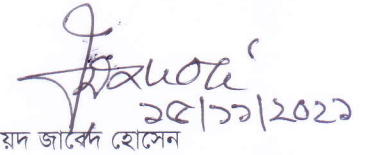 ১৫/১১/২০২১
য়দ জাবেদ হোসেন